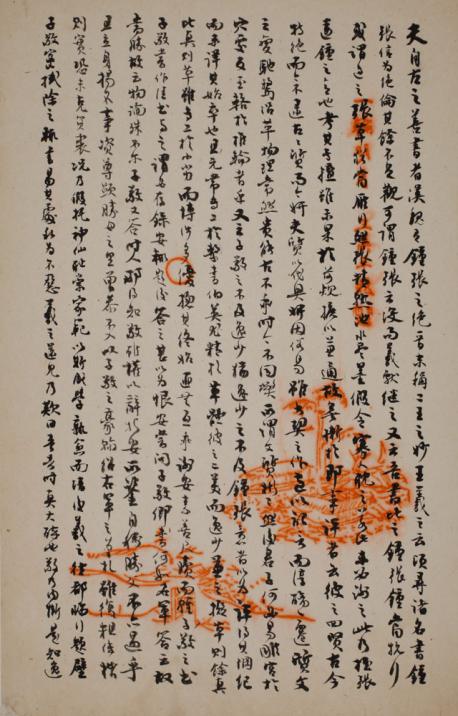 夫自古之善書者漢魏有鍾張之絕晉末稱二王之妙王羲之云頃尋諸名書鍾
張信為絕倫其餘不足觀可謂鍾張云沒而羲獻繼之又云吾書比之鍾張鍾當抗行
或謂過之張草猶當雁行然張精熟池水盡墨假令寡人耽之若此未必謝之此乃推張
邁鍾之意也考其專擅雖未果於前規摭以兼通故無慚於即事評者云彼之四賢古今
特絕而今不逮古古質而今妍夫質以代興妍因俗易雖書契之作適以記言而淳醨一遷質文
三變馳騖沿革物理常然貴能古不乖時今不同弊所謂文質彬彬然後君子何必易雕宮於
穴處反玉輅於椎輪者乎又云子敬之不及逸少猶逸少之不及鍾張意者以為評得其綱紀
而未詳其始卒也且元常專工於隸書伯英尤精於草體彼之二美而逸少兼之擬草則餘真
比真則長草雖專工小劣而博涉多優總其終始匪無乖互謝安素善尺牘而輕子敬之書
子敬嘗作佳書與之謂必存錄安輒題後答之甚以為恨安嘗問子敬卿書何如右軍答云故
當勝安云物論殊不爾子敬又答時人那得知敬雖權以此辭折安所鑒自稱勝父不亦過乎
且立身揚名事資尊顯勝母之里曾參不入以子敬之豪翰紹右軍之筆札雖復粗傳楷
則實恐未克箕裘況乃假托神仙恥崇家範以斯成學孰愈面牆後羲之往都臨行題壁
子敬密拭除之輒書易其處私為不惡羲之還見乃歎曰吾去時真大醉也敬乃內慚是知逸